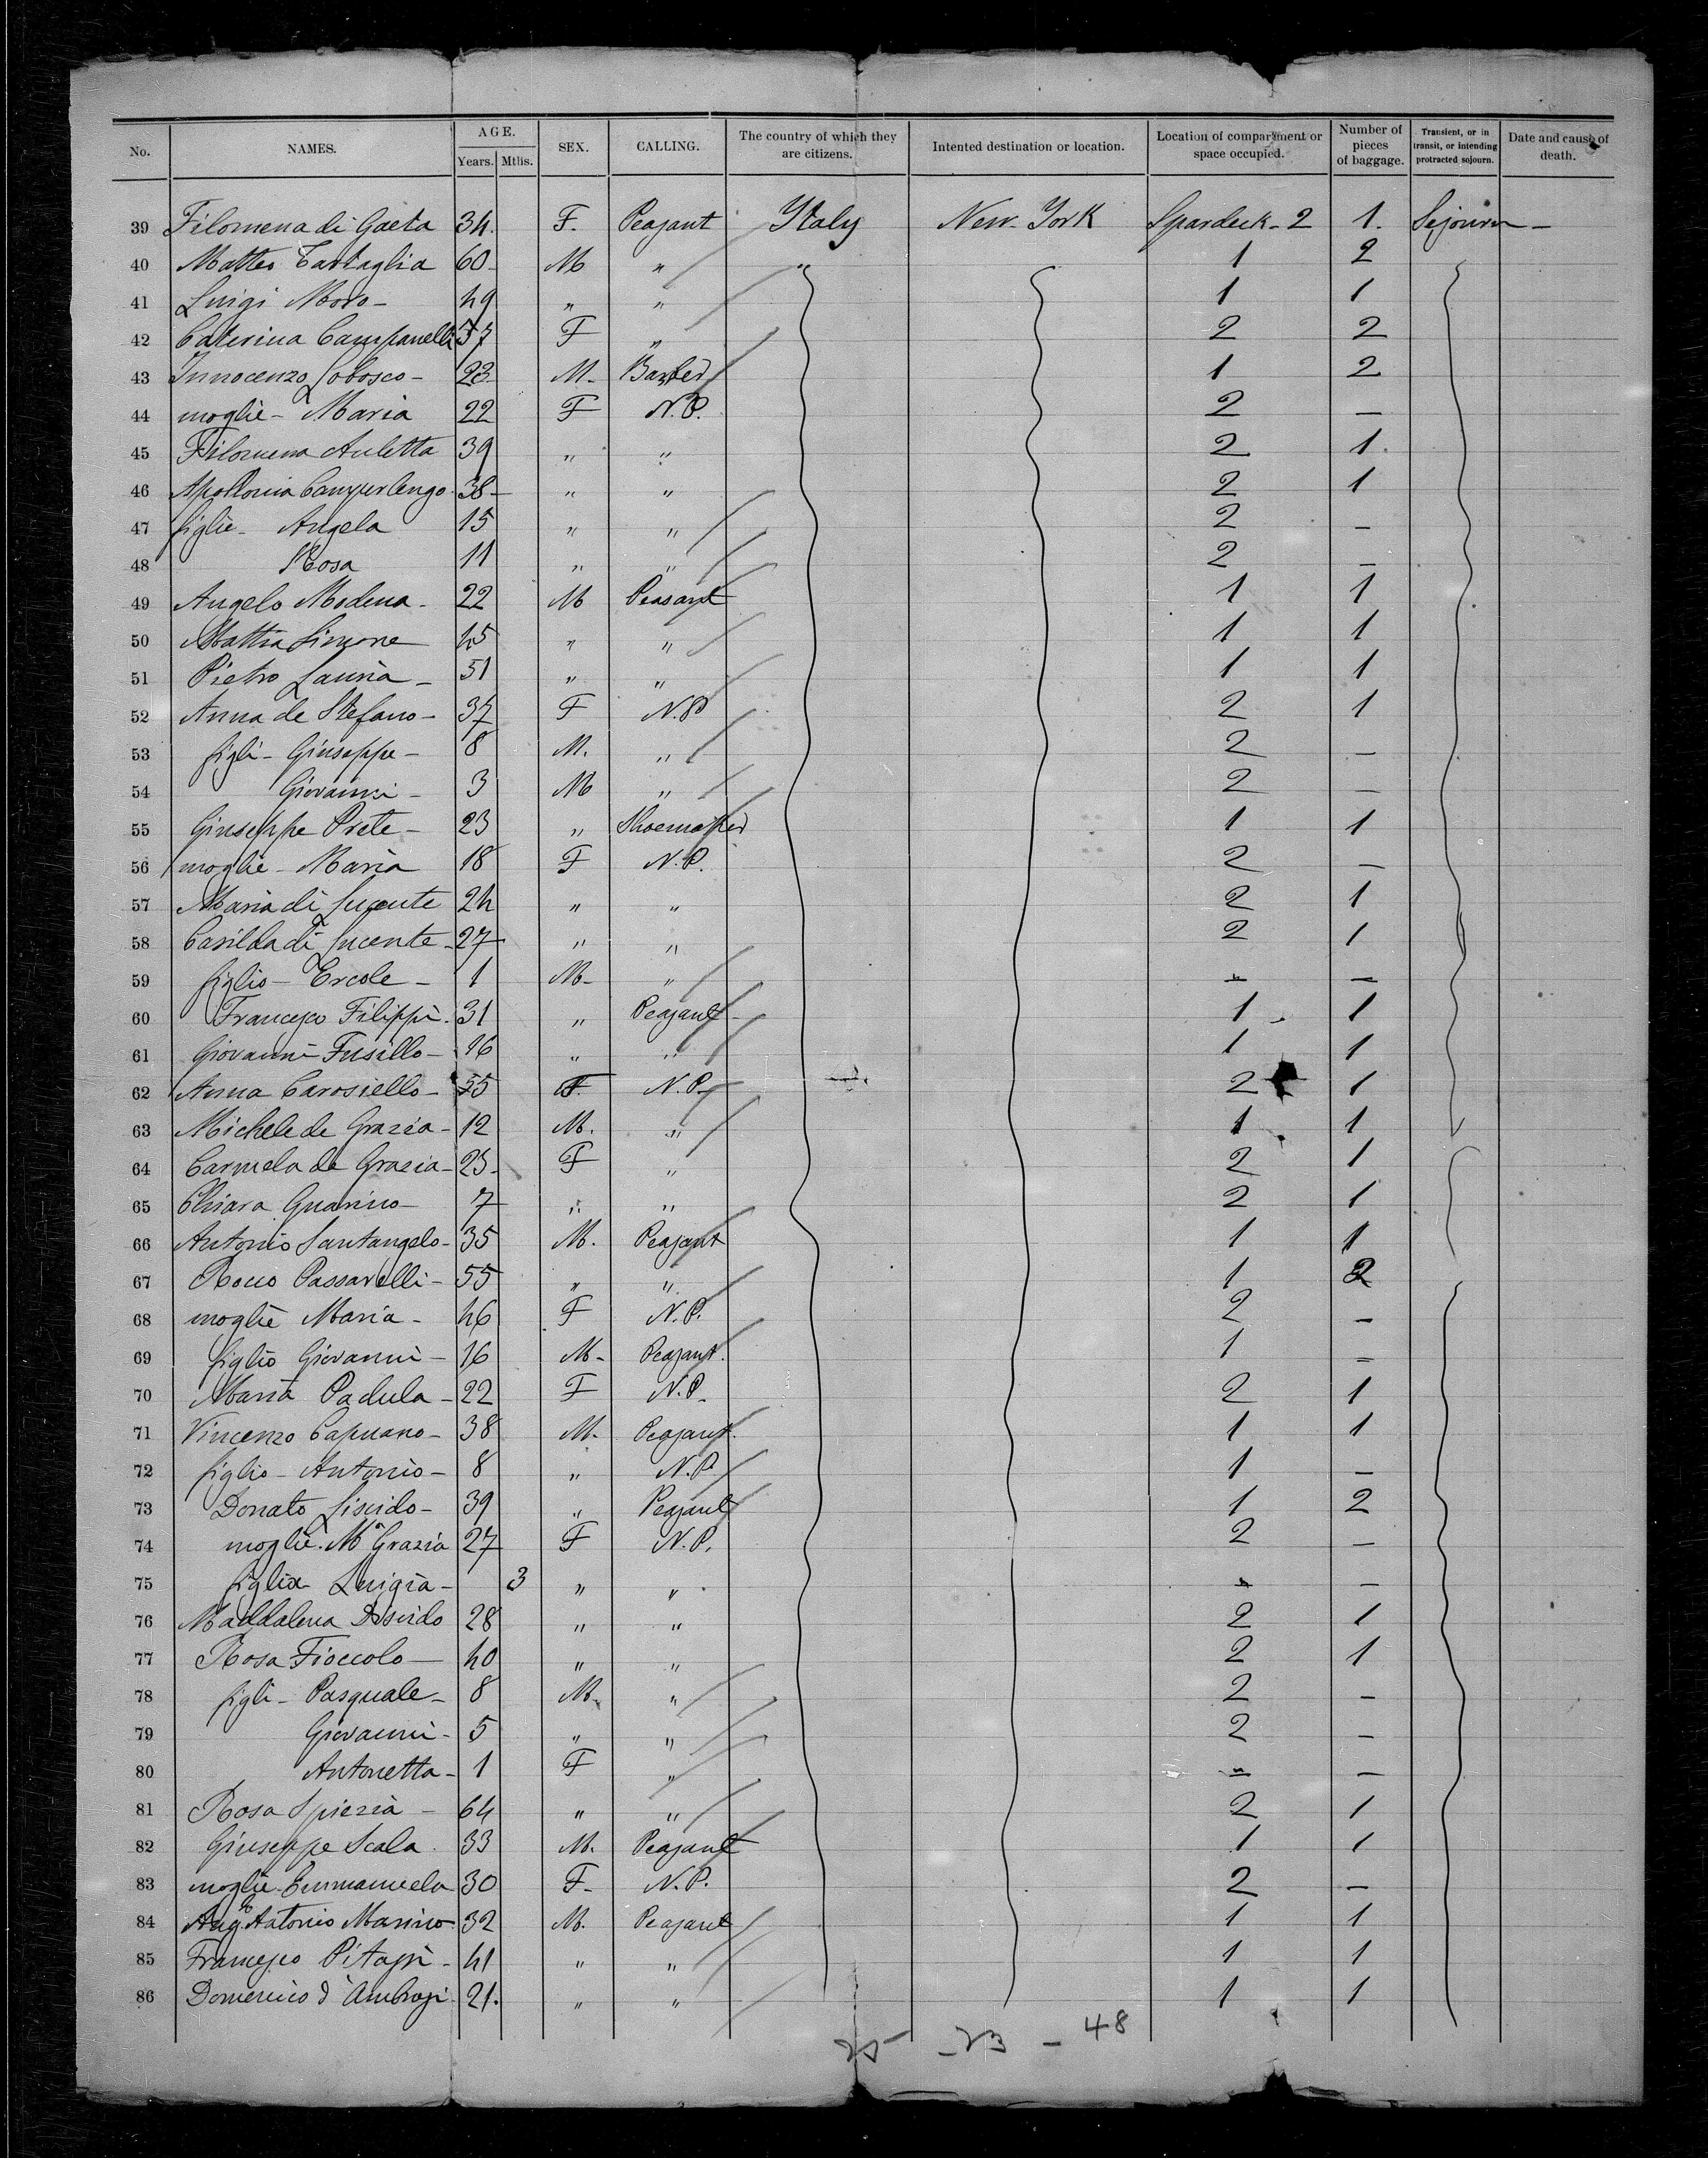 No. NAMES. AGE. Years. Mths. SEX. CALLING. The country of which they are citizens. Intented destination or location. Location of compartment or space occupied. Number of pieces of baggage. Transient, or in transit, or intending protracted sojourn. Date and cause of death.
39 Filomena di Gaeta 34. F. Peasant Italy New-York Spardeck-2 1. Sejourn -
40 Matteo Tartaglia 60- M " " 1 2
41 Luigi Moro- 49 " " 1 1
42 Caterina Campanelli 57 F " 2 2
43 Innocenzo Lobosco- 23 M- Barber 1 2
44 moglie- Maria 22 F N.P. 2 -
45 Filomena Auletta 39 " " 2 1
46 Apollonia 38- " " 2 1
47 figlie- Angela 15 " " 2 -
48 Rosa 11 " " 2 -
49 Angelo Modena- 22 M Peasant 1 1
50 Mattia Simone 45 " " 1 1
51 Pietro Lauria- 51 " " 1 1
52 Anna de Stefano- 37 F N.P 2 1
53 figli- Giuseppe- 8 M. " 2 -
54 Giovanni- 3 M " 2 -
55 Giuseppe Prete- 23 " Shoemaker 1 1
56 moglie- Maria 18 F N.P. 2 -
57 Maria di Lucente 24 " " 2 1
58 Casilda di Lucente- 27 " " 2 1
59 figlio- Ercole- 1 M- " - -
60 Francesco Filippi. 31 " Peasant 1 1
61 Giovanni Fusillo- 16 " " 1 1
62 Anna Carosiello- 55 F. N.P. 2 1
63 Michele de Grazia- 12 M. " 1 1
64 Carmela de Grazia- 23- F " 2 1
65 Chiara Guarino- 7 " " 2 1
66 Antonio Santangelo- 35 M. Peasant 1 1
67 Rocco Passarelli- 55 " " 1 2
68 moglie Maria- 46 F N.P. 2 -
69 figlio Giovanni- 16 M- Peasant. 1 -
70 Maria Padula- 22 F N.P. 2 1
71 Vincenzo Capuano- 38 M. Peasant. 1 1
72 figlio- Antonio- 8 " N.P 1 -
73 Donato Liscido- 39 " Peasant 1 2
74 moglie. Ma Grazia 27 F N.P. 2 -
75 figlia- Luigia- 3 " " - -
76 Maddalena 28 " " 2 1
77 Rosa Fioccolo- 40 " " 2 1
78 figli- Pasquale- 8 M. " 2 -
79 Giovanni- 5 " " 2 -
80 Antonetta- 1 F " - -
81 Rosa Spiezia- 64 " " 2 1
82 Giuseppe Scala. 33 M. Peasant 1 1
83 moglie. Emmanuela 30 F- N.P. 2 -
84 Ang. Antonio Marino- 32 M. Peasant 1 1
85 Francesco 41 " " 1 1
86 Domenico d'Ambrosi 21. " " 1 1
25 - 23 - 48